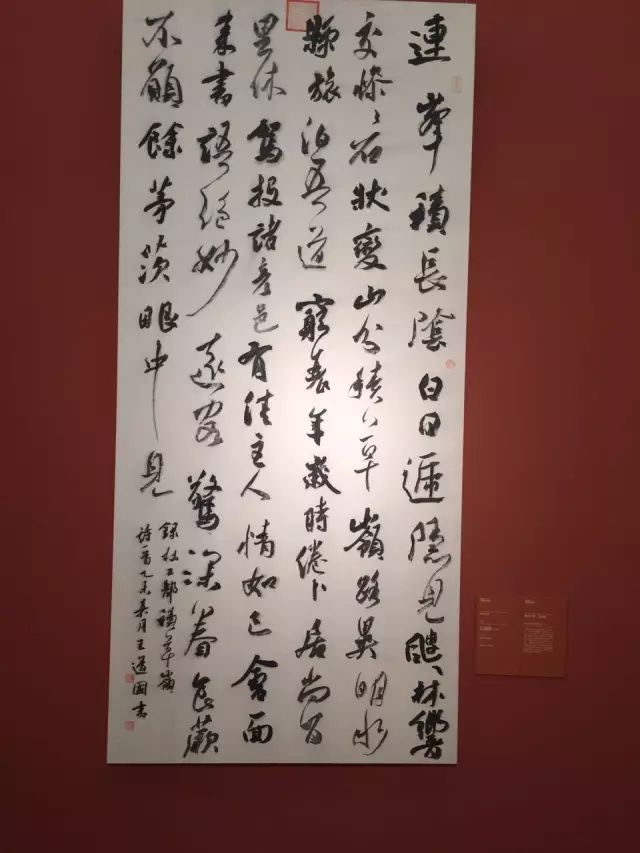 連峯積長陰白日遞隱見颼〻林響
交慘〻石狀變山分積草嶺路異明水
縣旅泊吾道窮衰年歲時倦卜居尚百
里休駕投諸彥邑有佳主人情如已會面
來書語絕妙遠客驚深眷食蕨
不願餘茅茨眼中見
錄杜工部積草嶺
詩一首乙月王道國書